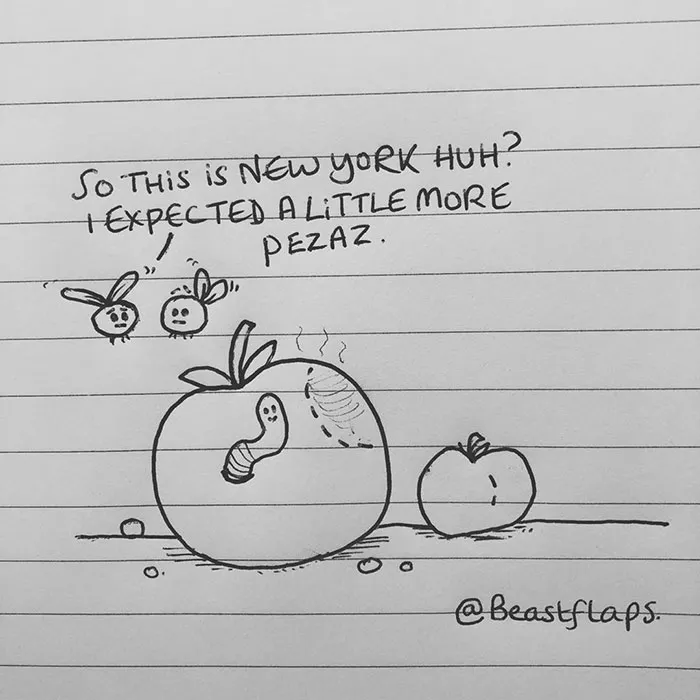 So THiS iS NEW YORK HUH?
I EXPECTED A LiTTLE MORE
PEZAZ.
@Beastflaps.